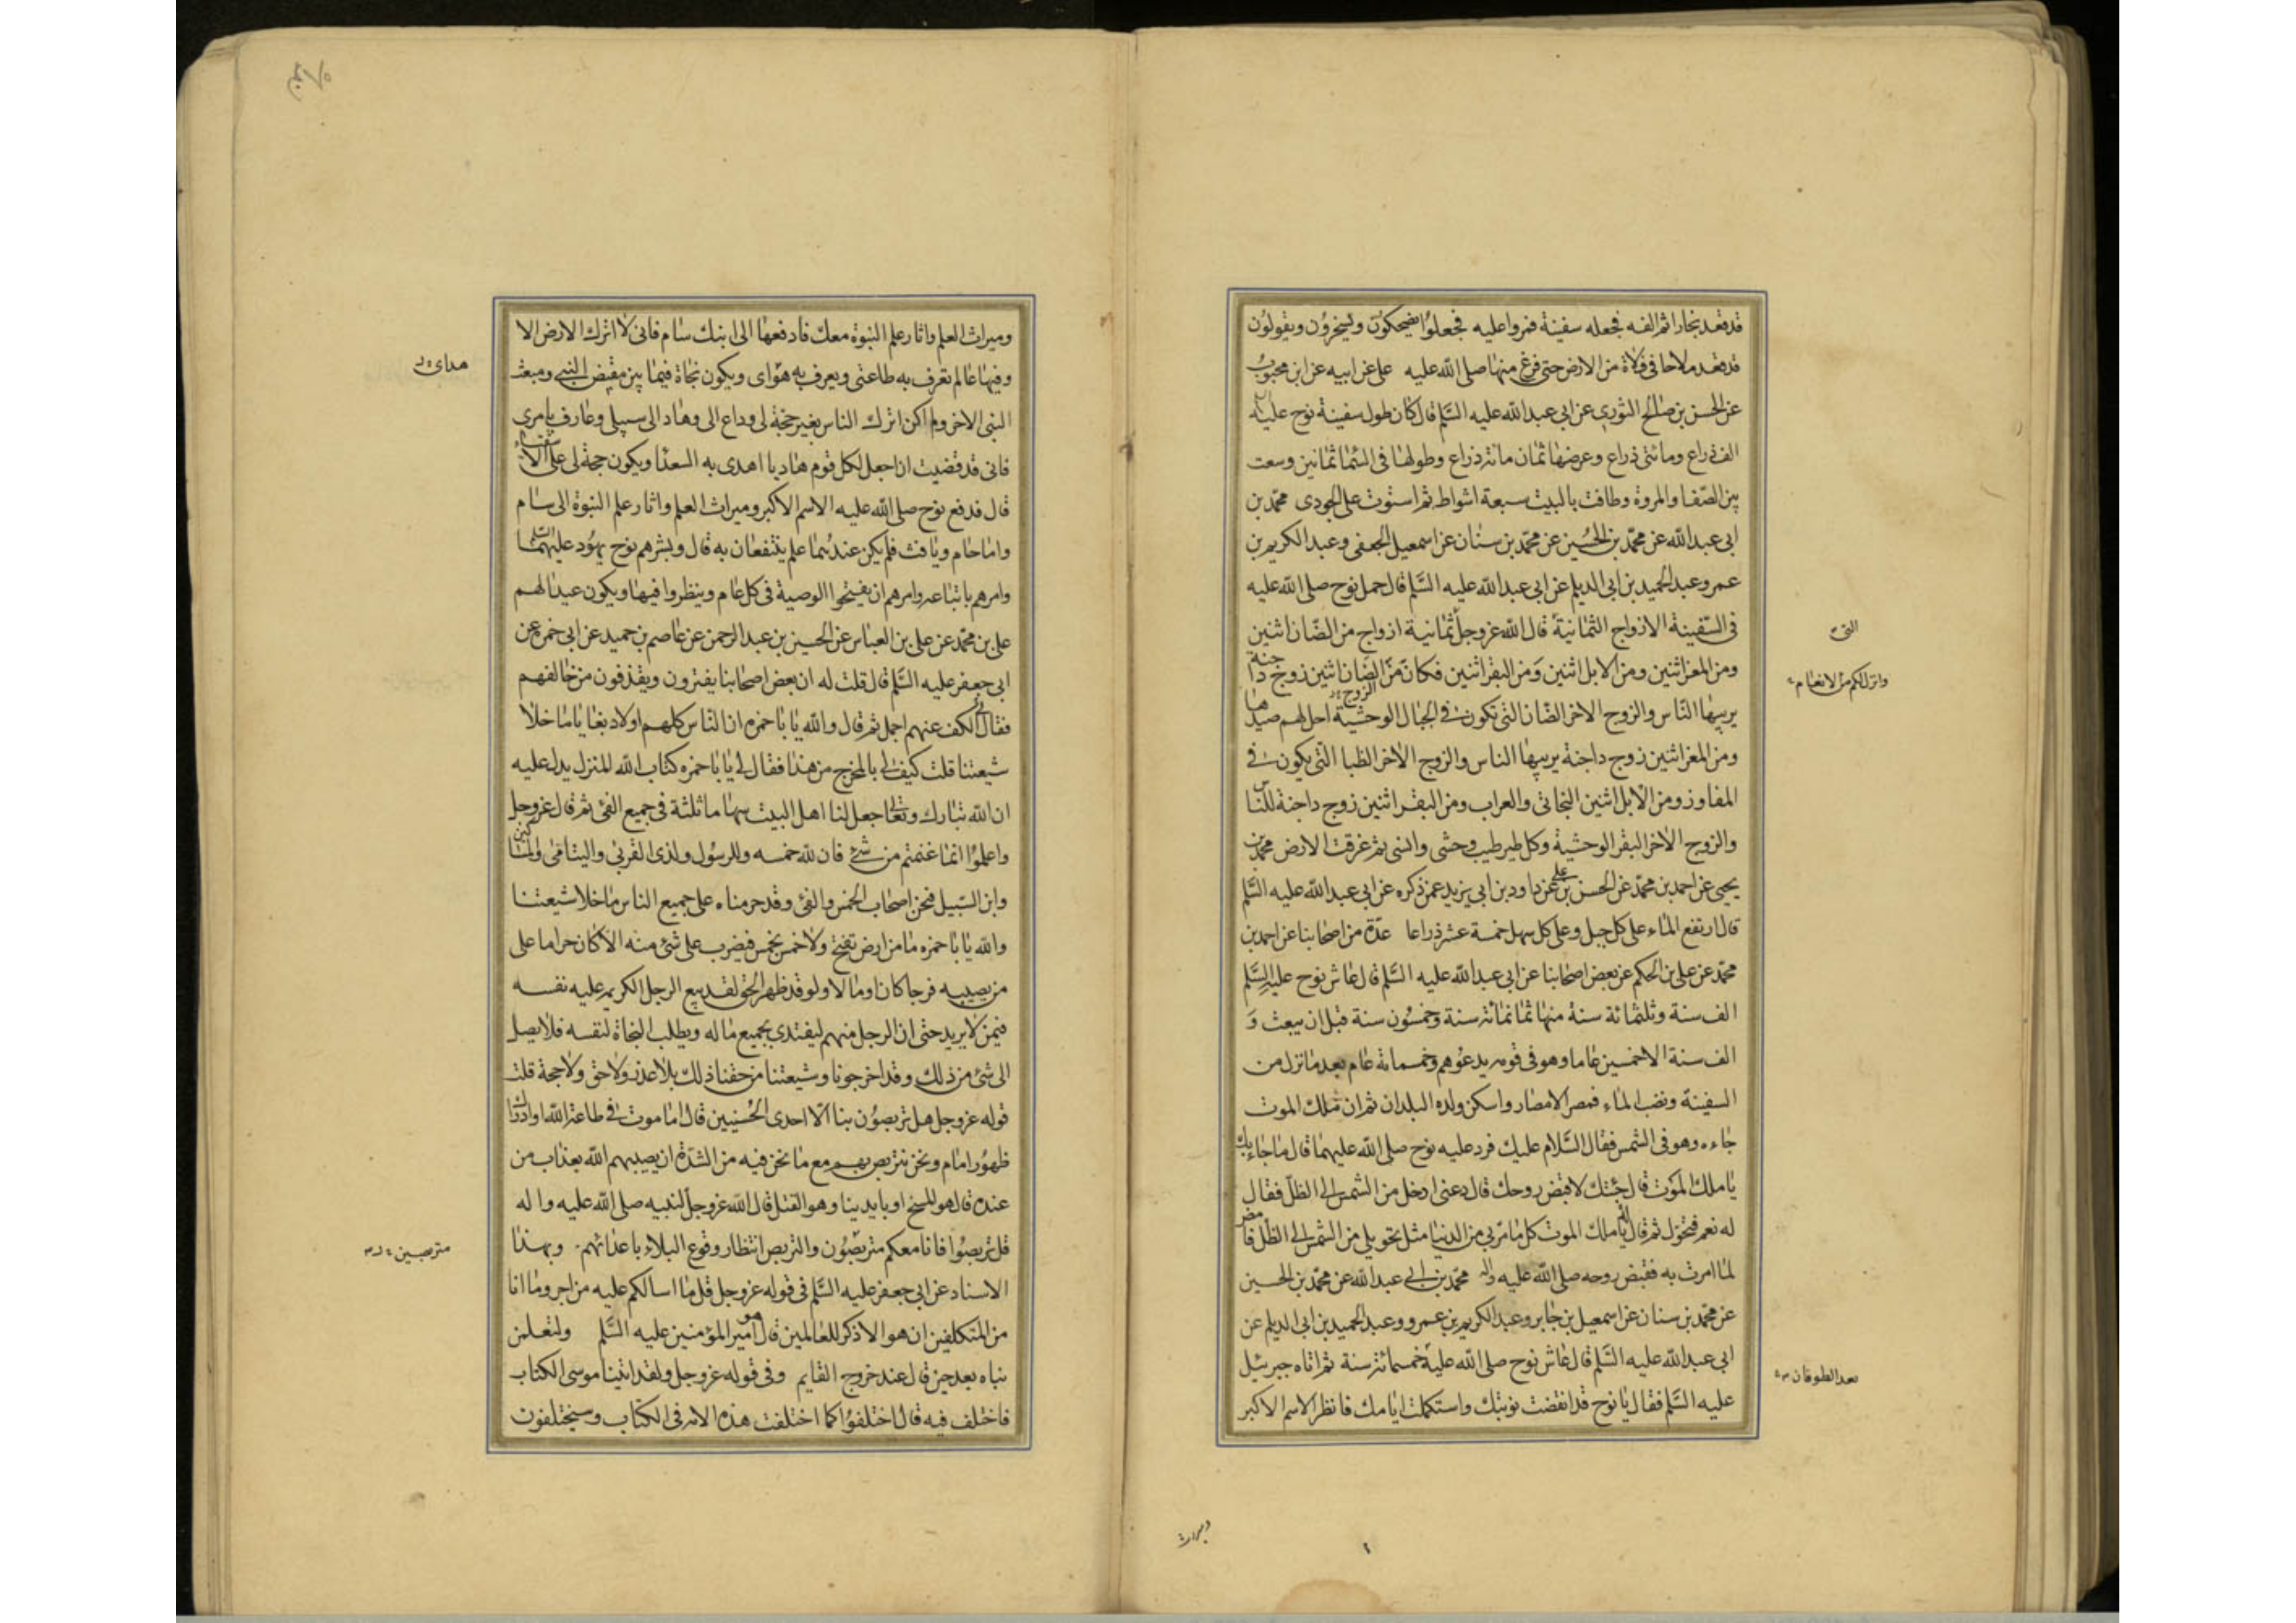 قد قعد نجارا ثم الفه فجعله سفينة فمروا عليه فجعلوا يضحكون ويسخرون ويقولون
قد قعد ملاحا فى فلاة من الارض حتى فرغ منها صلى الله عليه على عن ابيه عن ابن محبوب
عن الحسن بن صالح الثورى عن ابى عبد الله عليه السلم قال كان طول سفينة نوح عليه
الف ذراع ومائتى ذراع وعرضها ثمان مائة ذراع وطولها فى السما ثمانين وسعت
بين الصفا والمروة وطافت بالبيت سبعة اشواط ثم استوت على الجودى محمد بن
ابى عبد الله عن محمد بن الحسين عن محمد بن سنان عن اسمعيل الجعفى وعبد الكريم بن
عمرو عبد الحميد بن ابى الديلم عن ابى عبد الله عليه السلم قال حمل نوح صلى الله عليه
فى السفينة الازواج الثمانية قال الله عز وجل ثمانية ازواج من الضان اثنين
التى
ومن المعز اثنين ومن الابل اثنين ومن البقر اثنين فكان من الضان اثنين زوج داجنة
وانزل لكم من الانعام
يربيها الناس والزوج الاخر الضان التى تكون فى الجبال الوحشية احل لهم صيدها
ومن المعز اثنين زوج داجنة يربيها الناس والزوج الاخر الظبا التى يكون فى
المفاوز ومن الابل اثنين البخاتى والعراب ومن البقر اثنين زوج داجنة للناس
والزوج الاخر البقر الوحشية وكل طير طيب وحشى وانسى ثم غرقت الارض محمد بن
يحيى عن احمد بن محمد عن الحسن بن على عن داود بن ابى يزيد عمن ذكره عن ابى عبد الله عليه السلم
قال ارتفع الماء على كل جبل وعلى كل سهل خمسة عشر ذراعا عدة من اصحابنا عن احمد بن
محمد عن على بن الحكم عن بعض اصحابنا عن ابى عبد الله عليه السلم قال عاش نوح عليه السلم
الف سنة وثلثمائة سنة منها ثمانمائة سنة وخمسون سنة قبل ان يبعث و
الف سنة الا خمسين عاما وهو فى قومه يدعوهم وخمسمائة عام بعد ما نزل من
السفينة ونضب الماء فمصر الامصار واسكن ولده البلدان ثم ان ملك الموت
جاءه وهو فى الشمس فقال السلام عليك فرد عليه نوح صلى الله عليهما قال ما جاء بك
يا ملك الموت قال جئتك لاقبض روحك قال دعنى ادخل من الشمس الى الظل فقال
له نعم فتحول ثم قال يا ملك الموت كل ما مر بى من الدنيا مثل تحويلى من الشمس الى الظل فامض
لما امرت به فقبض روحه صلى الله عليه واله محمد بن ابى عبد الله عن محمد بن الحسين
عن محمد بن سنان عن اسمعيل بن جابر وعبد الكريم بن عمرو وعبد الحميد بن ابى الديلم عن
ابى عبد الله عليه السلم قال عاش نوح صلى الله عليه خمسمائة سنة ثم اتاه جبرئيل
بعد الطوفان
عليه السلم فقال يا نوح قد انقضت نوبتك واستكملت ايامك فانظر الاسم الاكبر
وميراث
وميراث العلم واثار علم النبوة معك فادفعها الى ابنك سام فانى لا اترك الارض الا
وفيها عالم تعرف به طاعتى ويعرف به هواى ويكون نجاة فيما بين مقبض النبى ومبعث
هداى
النبى الاخر ولم اكن اترك الناس بغير حجة لى وداع الى وهاد الى سبيلى وعارف بامرى
فانى قد قضيت ان اجعل لكل قوم هاديا اهدى به السعدا ويكون حجة لى على الاشقياء
قال فدفع نوح صلى الله عليه الاسم الاكبر وميراث العلم واثار علم النبوة الى سام
واما حام ويافث فلم يكن عندهما علم ينتفعان به قال وبشرهم نوح بهود عليهما السلم
وامرهم باتباعه وامرهم ان يفتحوا الوصية فى كل عام وينظروا فيها ويكون عيدا لهم
على بن محمد عن على بن العباس عن الحسين بن عبد الرحمن عن عاصم بن حميد عن ابى حمزه عن
ابى جعفر عليه السلم قال قلت له ان بعض اصحابنا يفترون ويقذفون من خالفهم
فقال لى الكف عنهم اجمل ثم قال والله يا با حمزه ان الناس كلهم اولاد بغايا ما خلا
شيعتنا قلت كيف لى بالمخرج من هذا فقال لى يا با حمزه كتاب الله المنزل يدل عليه
ان الله تبارك وتعالى جعل لنا اهل البيت سهاما ثلثة فى جميع الفئ ثم قال عز وجل
واعلموا انما غنمتم من شئ فان لله خمسه وللرسول ولذى القربى واليتامى والمساكين
وابن السبيل فنحن اصحاب الخمس والفئ وقد حرمناه على جميع الناس ما خلا شيعتنا
والله يا با حمزه ما من ارض تفتح ولا خمس يخمس فيضرب على شئ منه الا كان حراما على
من يصيبه فرجا كان او مالا ولو قد ظهر الحق لقد بيع الرجل الكريم عليه نفسه
فيمن لا يريد حتى ان الرجل منهم ليفتدى بجميع ماله ويطلب النجاة لنفسه فلا يصل
الى شئ من ذلك وقد اخرجونا وشيعتنا من حقنا ذلك بلا عذر ولا حق ولا حجة قلت
قوله عز وجل هل تربصون بنا الا احدى الحسنيين قال اما موت فى طاعة الله او ادراك
ظهور امام ونحن نتربص بهم مع ما نحن فيه من الشدة ان يصيبهم الله بعذاب من
عنده قال هو المسخ او بايدينا وهو القتل قال الله عز وجل لنبيه صلى الله عليه واله
قل تربصوا فانا معكم متربصون والتربص انتظار وقوع البلاء باعدائهم وبهذا
متربصين
الاسناد عن ابى جعفر عليه السلم فى قوله عز وجل قل ما اسالكم عليه من اجر وما انا
من المتكلفين ان هو الا ذكر للعالمين قال هو امير المؤمنين عليه السلم ولتعلمن
نباه بعد حين قال عند خروج القايم وفى قوله عز وجل ولقد اتينا موسى الكتاب
فاختلف فيه قال اختلفوا كما اختلفت هذه الامة فى الكتاب وسيختلفون